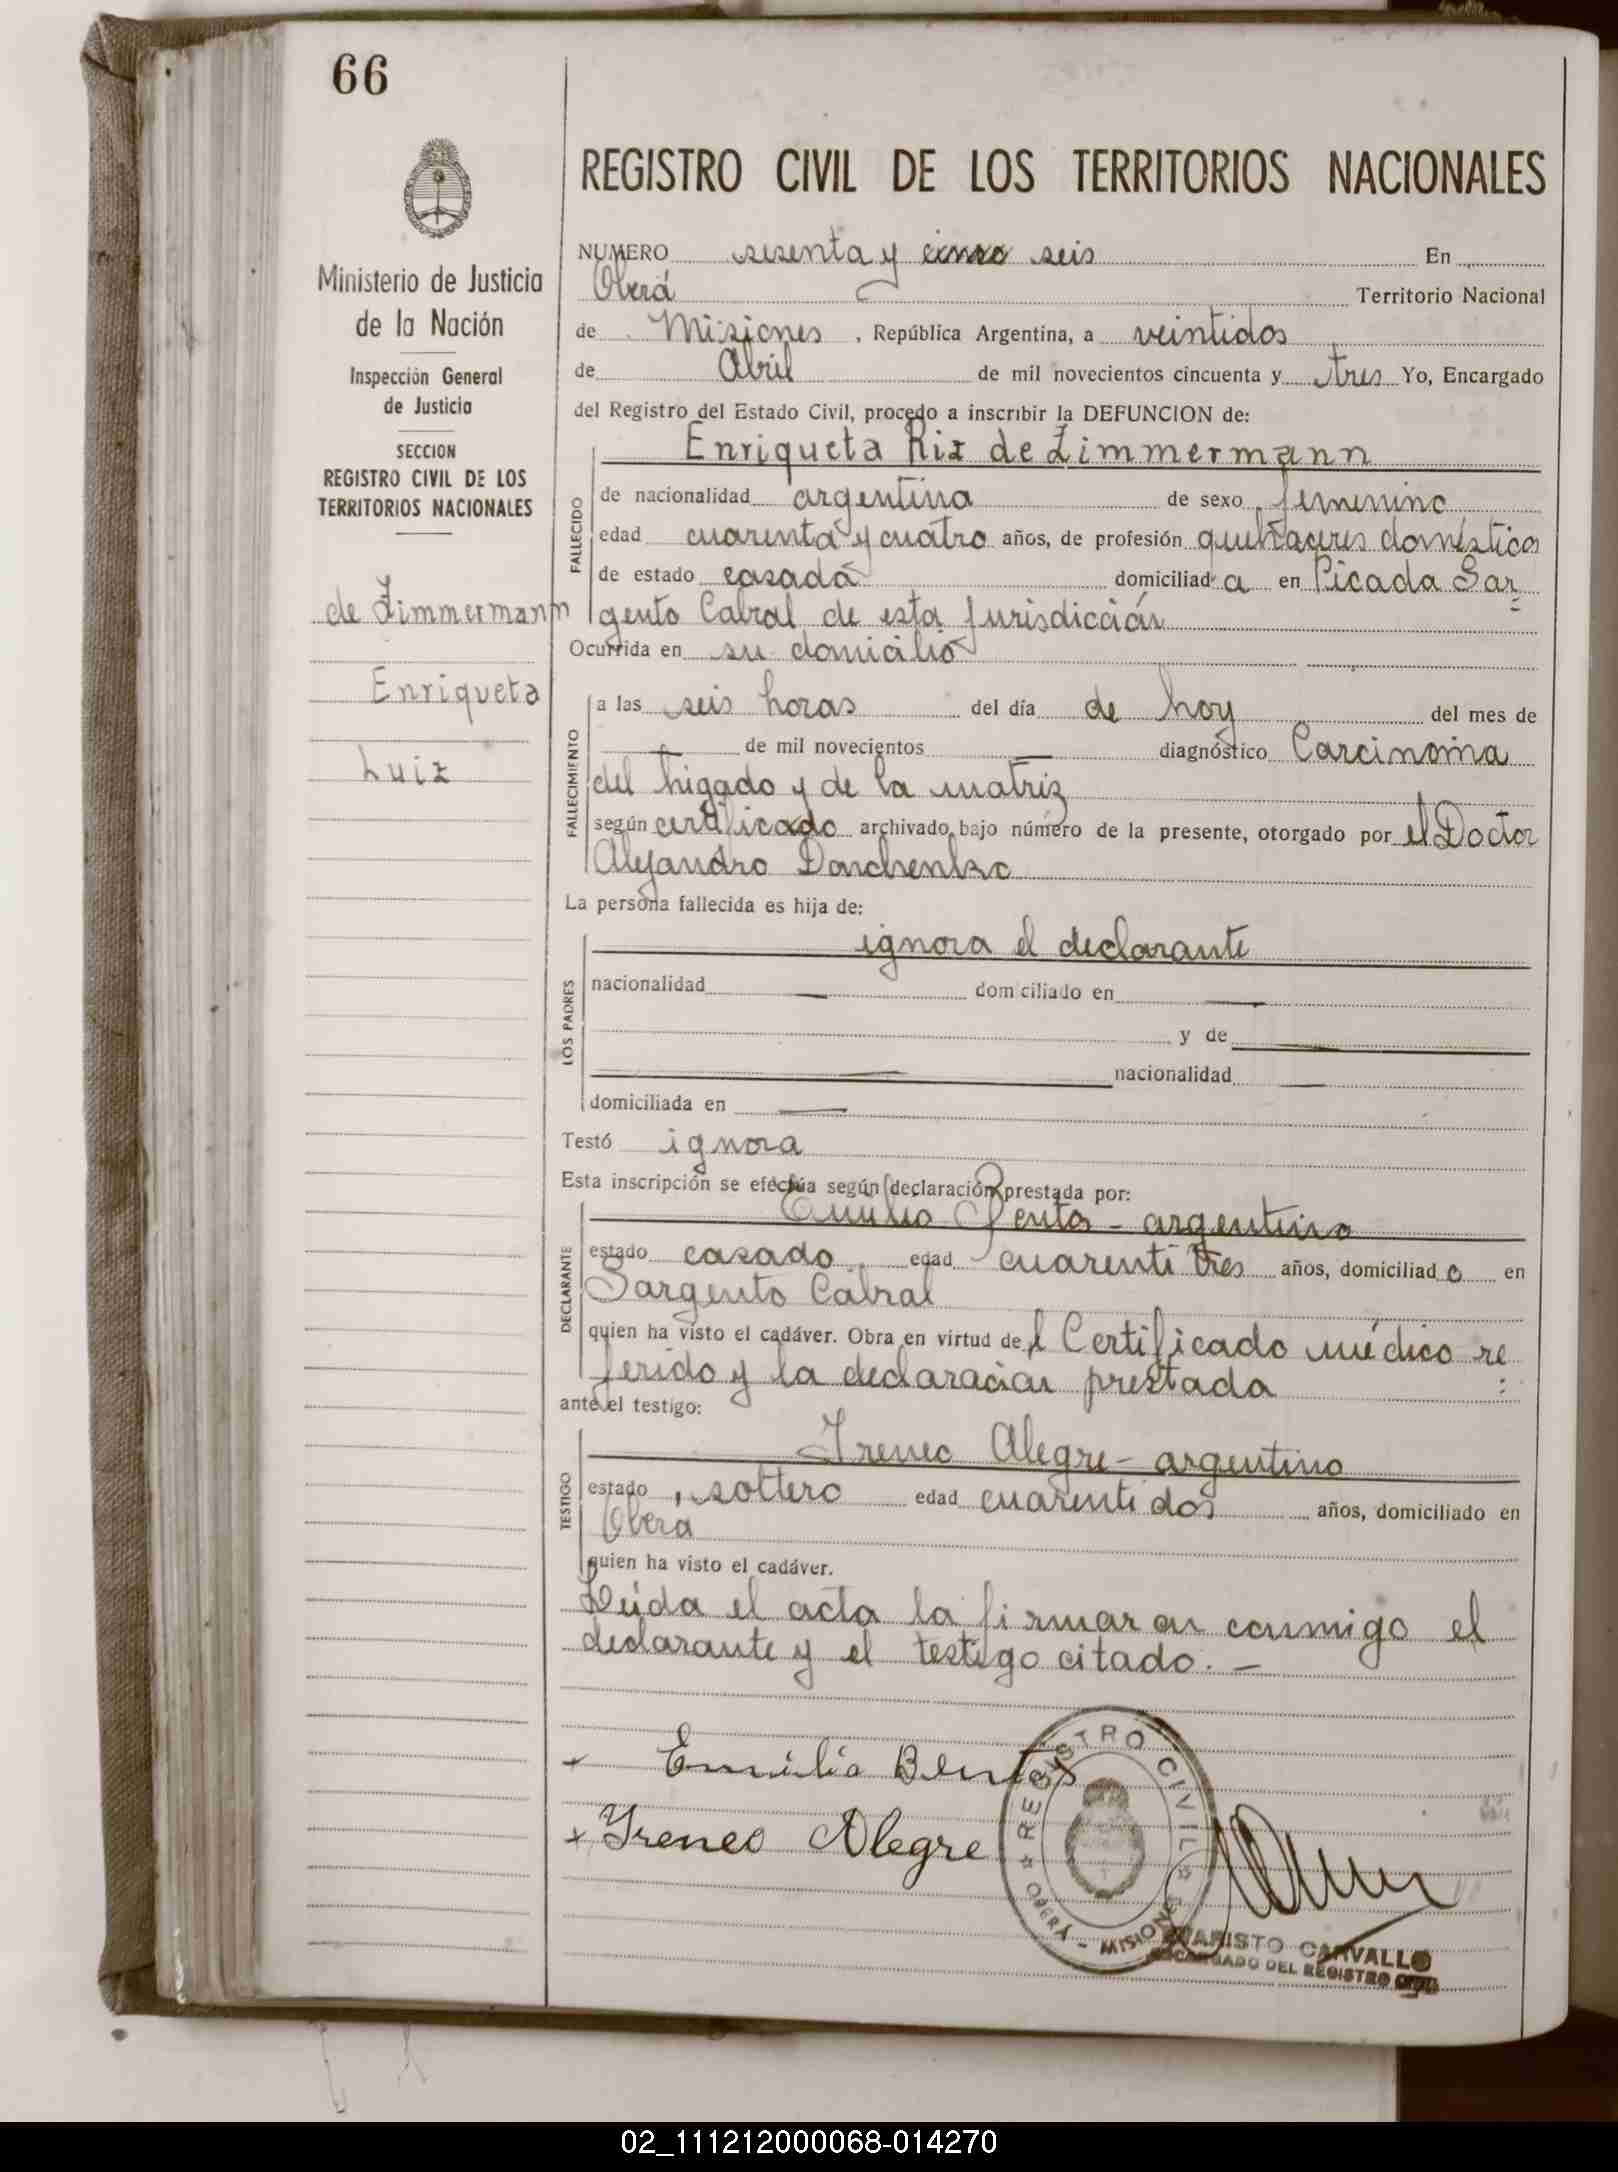 66
Ministerio de Justicia
de la Nación
Inspección General
de Justicia
SECCION
REGISTRO CIVIL DE LOS
TERRITORIOS NACIONALES
de Zimmermann
Enriqueta
Luiz
REGISTRO CIVIL DE LOS TERRITORIOS NACIONALES
NUMERO sesenta y cinco seis En
Oberá Territorio Nacional
de Misiones, República Argentina, a veintidos
de Abril de mil novecientos cincuenta y tres Yo, Encargado
del Registro del Estado Civil, procedo a inscribir la DEFUNCION de:
Enriqueta de Zimmermann
FALLECIDO
de nacionalidad argentina de sexo femenino
edad cuarenta y cuatro años, de profesión quehaceres domésticos
de estado casada domiciliada en Picada Sar=
gento Cabral de esta jurisdicción
Ocurrida en su domicilio
FALLECIMIENTO
a las seis horas del día de hoy del mes de
— de mil novecientos — diagnóstico Carcinoma
del higado y de la matriz
según certificado archivado bajo número de la presente, otorgado por el Doctor
Alejandro
La persona fallecida es hija de:
LOS PADRES
ignora el declarante
nacionalidad — domiciliado en —
y de —
— nacionalidad —
domiciliada en —
Testó ignora
Esta inscripción se efectúa según declaración prestada por:
DECLARANTE
Emilio - argentino
estado casado edad cuarentitres años, domiciliado en
Sargento Cabral
quien ha visto el cadáver. Obra en virtud del Certificado médico re
ferido y la declaracion prestada :
ante el testigo:
TESTIGO
Ireneo Alegre - argentino
estado soltero edad cuarentidos años, domiciliado en
Obera
quien ha visto el cadáver.
Leida el acta la firmaron conmigo el
declarante y el testigo citado. —
+ Emilio Bentos
+ Yreneo Alegre
REGISTRO CIVIL
OBERÁ - MISIONES
EVARISTO CARVALLO
ENCARGADO DEL REGISTRO CIVIL
02_111212000068-014270